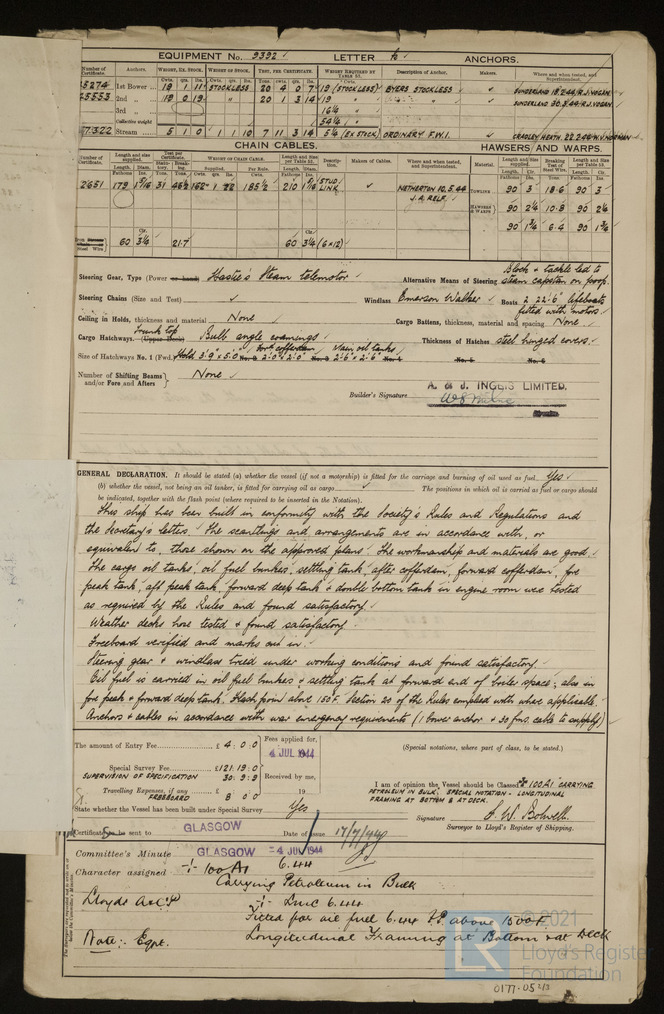 EQUIPMENT No. 9392 LETTER to ANCHORS.
Number of Certificate. Anchors. WEIGHT, EX. STOCK. WEIGHT OF STOCK. TEST, PER CERTIFICATE. WEIGHT REQUIRED BY TABLE 53. Description of Anchor. Makers. Where and when tested, and Superintendent.
Cwts. qrs. lbs. Cwts. qrs. lbs. Tons. Cwts. qrs. lbs. Cwts.
35274 1st Bower 19 1 11 STOCKLESS 20 4 0 7 19 (STOCKLESS) BYERS STOCKLESS SUNDERLAND
2nd 19 0 19 20 1 3 14 19 SUNDERLAND
3rd 16¼
Collective weight 54¼
57322 Stream 5 1 0 1 1 10 7 11 3 14 5¼ (EX STOCK) ORDINARY F.W.I. CRADLEY HEATH
CHAIN CABLES. HAWSERS AND WARPS.
Number of Certificate. Length and size supplied. Test per Certificate. WEIGHT OF CHAIN CABLE. Length and Size per Table 53. Description. Makers of Cables. Where and when tested, and Superintendent. Material. Length and size supplied. Breaking Test of Steel Wire. Length and Size per Table 53.
2651 179 1 5/16 31 46½ 162 1 22 185½ 210 1 5/16 STUD LINK NETHERTON 10.5.44 TOWLINE 90 3 18.6 90 3
J.A. RELF. HAWSERS & WARPS 90 2¼ 10.8 90 2¼
90 1¾ 6.4 90 1¾
Steel Wire 60 3¼ 21.7 60 3¼ (6×12)
Steering Gear, Type (Power or hand) Hastie's Steam telemotor Alternative Means of Steering Block & tackle led to steam capstan on poop.
Steering Chains (Size and Test) Windlass Emerson Walker Boats 2 22'.6" lifeboats fitted with motors.
Ceiling in Holds, thickness and material None Cargo Battens, thickness, material and spacing None
Cargo Hatchways. (Upper Deck) Trunk top Bulb angle coamings Thickness of Hatches steel hinged covers.
Size of Hatchways No. 1 (Fwd.) Hold 3'.9" × 5.0 No. 2 for'd cofferdam 2'.0" × 2'.0" No. 3 Main oil tanks 2'.6" × 2'.6" No. 4 No. 5 No. 6
Number of Shifting Beams and/or Fore and Afters None
Builder's Signature A. & J. INGLIS LIMITED.
Director.
GENERAL DECLARATION. It should be stated (a) whether the vessel (if not a motorship) is fitted for the carriage and burning of oil used as fuel Yes
(b) whether the vessel, not being an oil tanker, is fitted for carrying oil as cargo The positions in which oil is carried as fuel or cargo should
be indicated, together with the flash point (where required to be inserted in the Notation).
This ship has been built in conformity with the Society's Rules and Regulations and
the Secretary's letters. The scantlings and arrangements are in accordance with, or
equivalent to, those shown on the approved plans. The workmanship and materials are good.
The cargo oil tanks, oil fuel bunker, settling tank, after cofferdam, forward cofferdam, fore
peak tank, aft peak tank, forward deep tank & double bottom tank in engine room were tested
as required by the Rules and found satisfactory.
Weather decks hose tested & found satisfactory.
Freeboard verified and marks cut in.
Steering gear & windlass tried under working conditions and found satisfactory.
Oil fuel is carried in oil fuel bunkers & settling tank at forward end of boiler space; also in
fore peak & forward deep tank. Flash point above 150°F. Section 20 of the Rules complied with where applicable.
Anchors & cables in accordance with war emergency requirements (1 bower anchor & 30 fms. cable to supply)
The amount of Entry Fee £ 4 . 0 . 0 Fees applied for, 4 JUL 1944 (Special notations, where part of class, to be stated.)
Special Survey Fee £ 121.19.0
SUPERVISION OF SPECIFICATION 30. 9. 9 Received by me,
Travelling Expenses, if any £ 19
FREEBOARD 8 0 0
I am of opinion the Vessel should be Classed ✠ 100A1 "CARRYING
PETROLEUM IN BULK". SPECIAL NOTATION - LONGITUDINAL
FRAMING AT BOTTOM & AT DECK.
State whether the Vessel has been built under Special Survey Yes
Signature
Surveyor to Lloyd's Register of Shipping.
Certificate to be sent to GLASGOW Date of issue 17/7/44
Committee's Minute GLASGOW -4 JUL 1944
Character assigned ✠ 100 A1 6.44
Carrying Petroleum in Bulk
Lloyds A&CP ✠ LMC 6.44
Fitted for oil fuel 6.44 F.P. above 150°F.
Note:- Eqpt. Longitudinal Framing at Bottom & at Deck
LR © 2021
Lloyd's Register
Foundation
0177-05